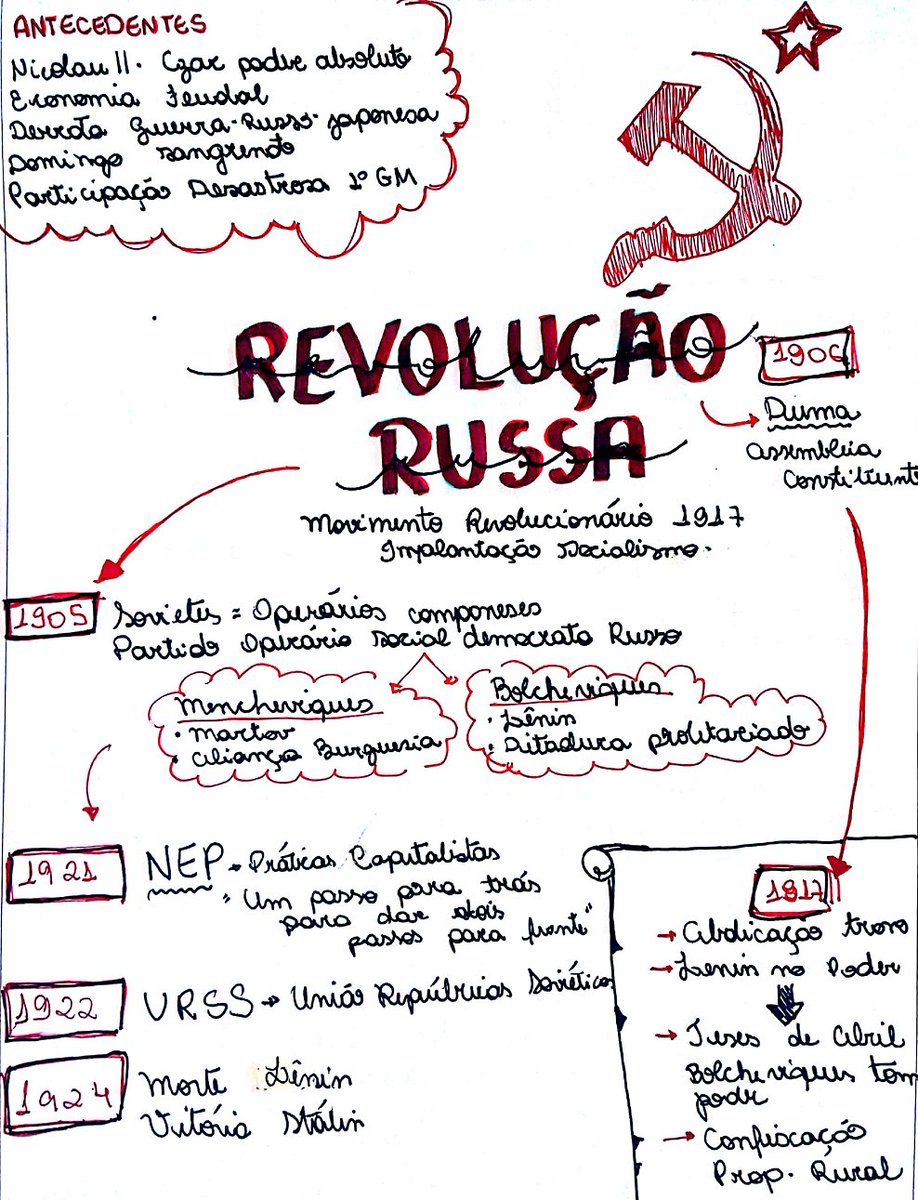 ANTECEDENTES
Nicolau II. Czar poder absoluto
Economia Feudal
Derrota Guerra-Russo-japonesa
Domingo sangrento
Participação Desastrosa 1º GM
REVOLUÇÃO
RUSSA
Movimento Revolucionário 1917
Implantação Socialismo.
1906
Duma
Assembleia
Constituint
1905
Sovietes = Operários componeses
Partido Operário social democrata Russo
Mencheviques
• Martov
• Aliança Burguesia
Bolcheviques
• Lênin
• Ditadura proletariado
1921
NEP → Práticas Capitalistas
"Um passo para trás
para dar dois
passos para frente"
1922
URSS → União Repúblicas Soviétics
1924
Morte Lênin
Vitória Stálin
1917
→ Abdicação trono
→ Lenin no Poder
→ Teses de Abril
Bolcheviques tom
poder
→ Confiscação
Prop. Rural